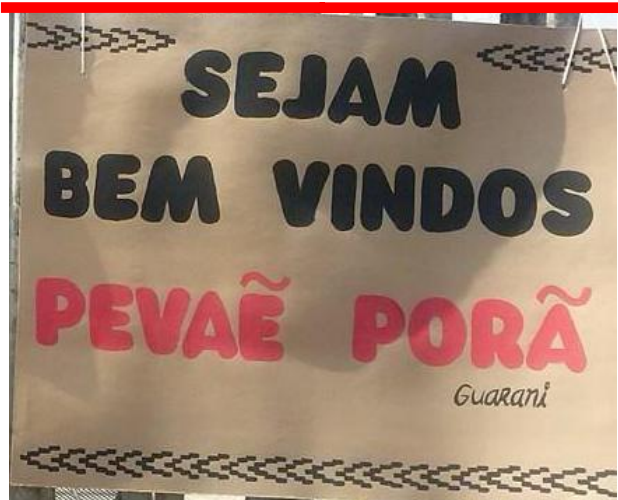 SEJAM
BEM VINDOS
PEVAẼ PORÃ
GUARANI